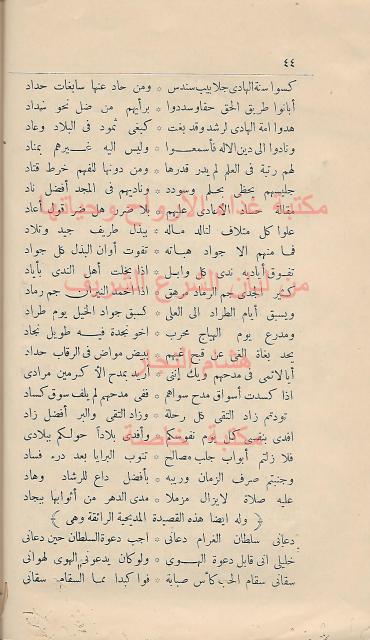 ٤٤
كسوا سنة الهادى جلابيب سندس * ومن حاد عنها سابغات حداد
أبانوا طريق الحق حقا وسددوا * برأيهم من ضل نحو سداد
هدوا امة الهادى لرشد وقد بغت * كبغى ثمود فى البلاد وعاد
ونادوا الى دين الاله فأسمعـــوا * وليس اليه غــيرهم بمناد
لهم رتبة فى العلم لم يدر قدرها * ومن دونها للفهم خرط قتاد
جليسهم يحظى بحــلم وسودد * وناديهم فى المجد أفضل ناد
مقالة حساد الاعادى عليهم * بلا ضرر هل ضر قول أعاد
علوا كل متلاف لتالد مــاله * ببذل طريف جيد وتلاد
فما منهم الا جواد هبــاته * تفوت أوان البذل كل جواد
تفــوق أياديه ندى كل وابــل * اذا بخلت أهل الندى بأياد
كثير الجدى جم الرماد مرهق * اذا أخمد النيران جم رماد
ويسبق أيام الطراد الى العلى * كسبق جواد الخيل يوم طراد
ومدرع يوم الهياج محرب * اخو نجدة فيــه طويل نجاد
يحد بغاة الغى عن قبح غيهم * ببيض مواض فى الرقاب حداد
أيا لائمى فى مدحهم ويك إننى * أريد بمدح الاكرمين مرادى
اذا كسدت أسواق مدح سواهم * ففى مدحهم لم يلف سوق كساد
تودتم زاد التقى كل رحلة * وزاد التقى والبر أفضل زاد
افدى بنفسى كل يوم نفوسكم * وأفدى بلادا حولكم ببلادى
فلا زلتم أبواب جلب مصالح * تنوب البرايا بعد درء فساد
وجنبتم صرف الزمان وريبه * بأفضل داع للرشاد وهاد
عليه صلاة لا يزال مزملا * مدى الدهر من أثوابها ببجاد
﴿ وله ايضا هذه القصيدة المديحية الرائقة وهى ﴾
دعانى سلطان الغرام دعانى * اجب دعوة السلطان حين دعانى
خليلى انى قابل دعوة الهــوى * ولو كان يدعونى الهوى لهوانى
سقانى سقام الحب كأس صبابة * فوا كبدا ممــا السقام سقانى
مكتبة غذاء الأرواح وحياتها
من لبنان الشرع الشريف
هشام النجار
مكتبة خاصة